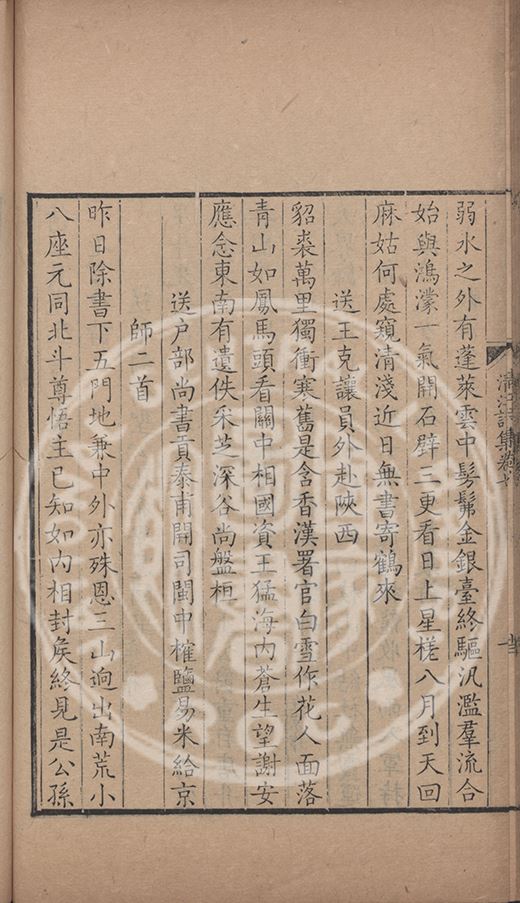 清江詩集卷
弱水之外有蓬萊雲中髣髴金銀臺終驅汎濫羣流合
始與鴻濛一氣開石壁三更看日上星槎八月到天回
麻姑何處窺清淺近日無書寄鶴來
送王克讓員外赴陝西
貂裘萬里獨衝寒舊是含香漢署官白雪作花人面落
青山如鳳馬頭看關中相國資王猛海內蒼生望謝安
應念東南有遺佚采芝深谷尚盤桓
送户部尚書貢泰甫開司閩中榷鹽易米給京
師二首
昨日除書下五門地兼中外亦殊恩三山迥出南荒小
八座元同北斗尊悟主已知如內相封矦終見是公孫